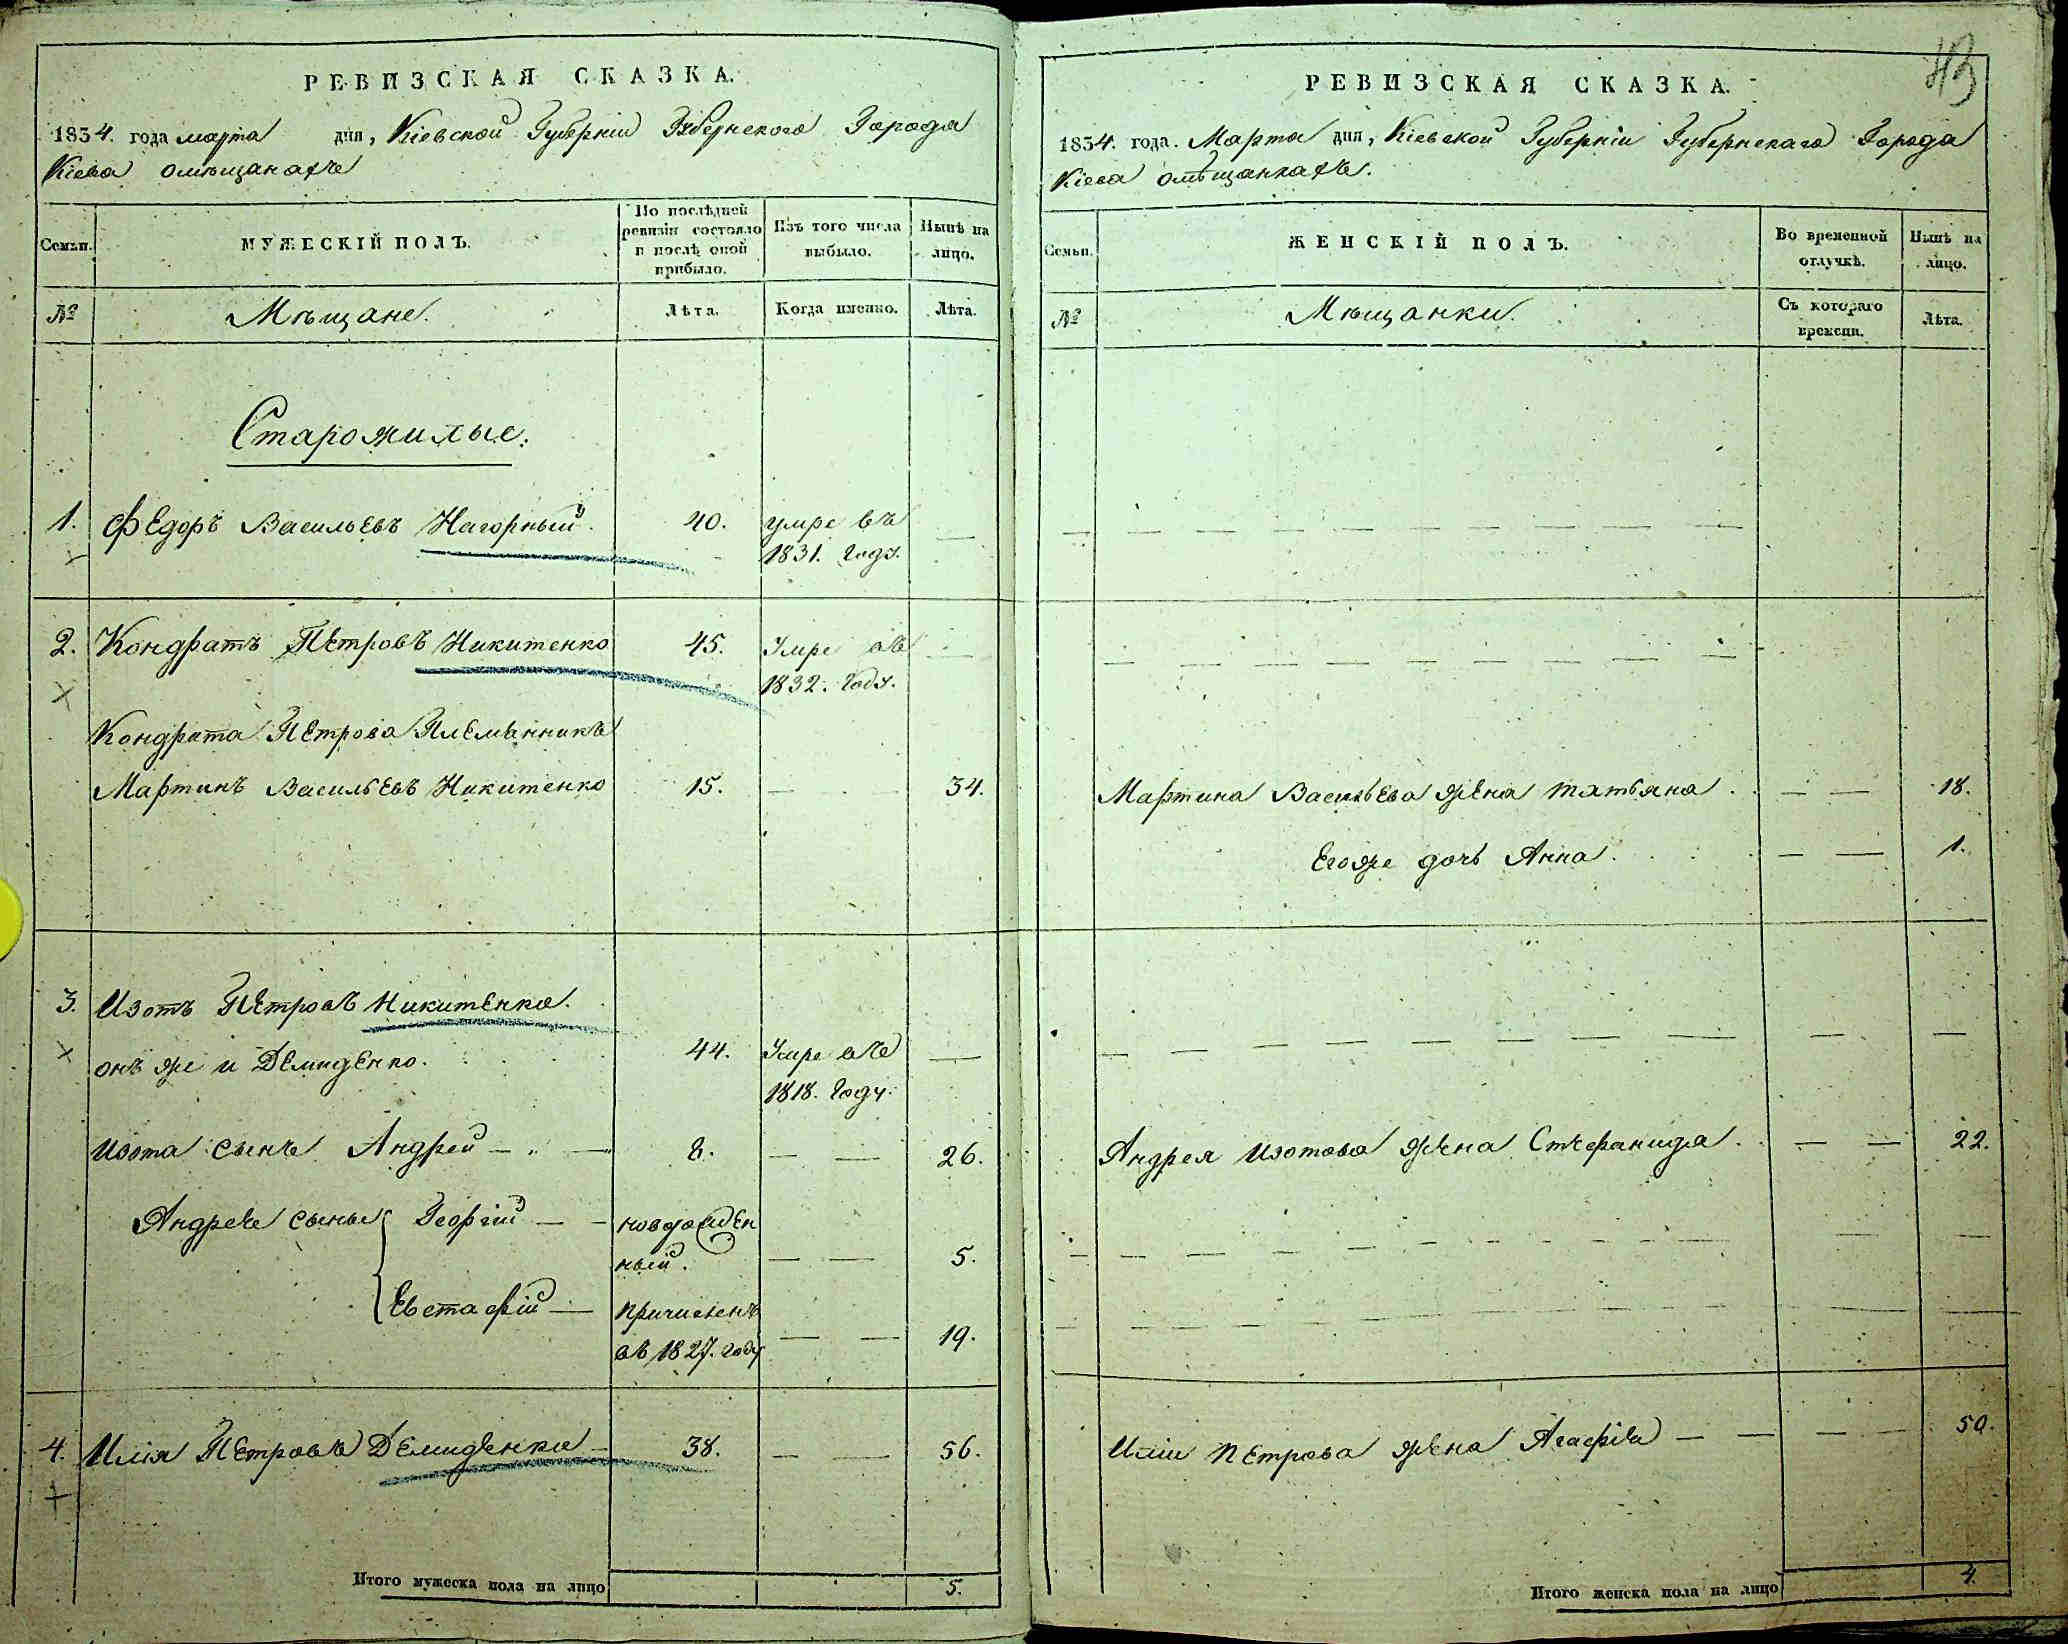 РЕВИЗСКАЯ СКАЗКА.
1834. года марта дня, Кіевской Губерніи Губернского Города
Кіева омещанахъ
Семьи.
МУЖЕСКІЙ ПОЛЪ.
По послѣдней
ревизіи состояло
и послѣ оной
прибыло.
Изъ того числа
выбыло.
Нынѣ на
лицо.
№
Мѣщане.
Лѣта.
Когда именно.
Лѣта.
Старожилые.
1. Федоръ Васильевъ Нагорный. 40. умре въ —
1831. году.
2. Кондратъ Петровъ Никитенко 45. Умре въ —
1832. году.
Кондрата Петрова Племянникъ
Мартинъ Васильевъ Никитенко 15. — — 34.
3. Изотъ Петровъ Никитенко.
онъ же и Демиденко. 44. Умре въ —
1818. году.
Изота сынъ Андрей — — 8. — — 26.
Андрея сыны Георгій — — новорожден
ный. — — 5.
Евстафій — причисленъ
въ 1827. году — — 19.
4. Илія Петровъ Демиденко — 38. — — 56.
Итого мужеска пола на лицо 5.
43
РЕВИЗСКАЯ СКАЗКА.
1834. года. Марта дня, Кіевской Губерніи Губернскаго Города
Кіева омѣщанкахъ.
Семьи.
ЖЕНСКІЙ ПОЛЪ.
Во временной
отлучкѣ.
Нынѣ на
лицо.
№
Мѣщанки.
Съ котораго
времени.
Лѣта.
Мартина Васильева жена татьяна. — — 18.
Егоже дочь Анна. — — 1.
Андрея Изотова жена Стефанида. — — 22.
Иліи Петрова жена Агафія — — — — 50.
Итого женска пола на лицо 4.